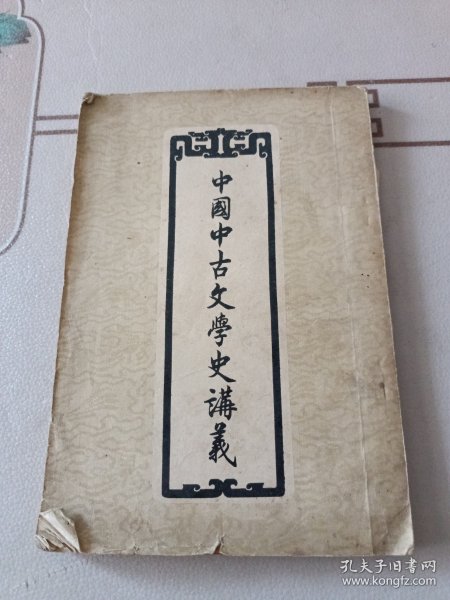 中國中古文學史講義
孔夫子旧书网
www.kongfz.com